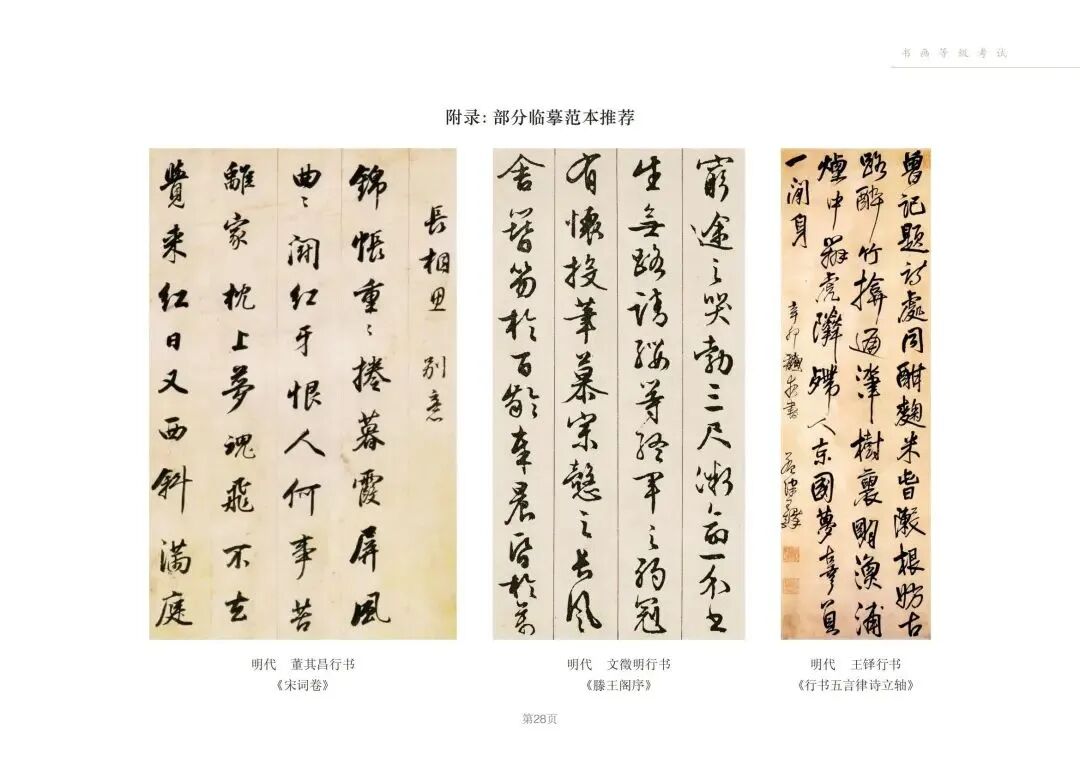 书画等级考试
附录：部分临摹范本推荐
長相思 别意
錦帳重〻捲暮霞屏風
曲〻鬪红牙恨人何事苦
離家枕上夢魂飛不去
覺来红日又西斜滿庭
窮途之哭勃三尺微命一介書
生無路請纓等終軍之弱冠
有懷投筆慕宗慤之長風
舍簪笏於百齡奉晨昏於萬
曾記題詩處同酣麴米 漱根妨古
路醉竹 通津樹裏明漁浦
煙中 虎隣殢人京國夢辜負
一閒身
辛卯 書 王鐸
明代 董其昌行书
《宋词卷》
明代 文徵明行书
《滕王阁序》
明代 王铎行书
《行书五言律诗立轴》
第28页